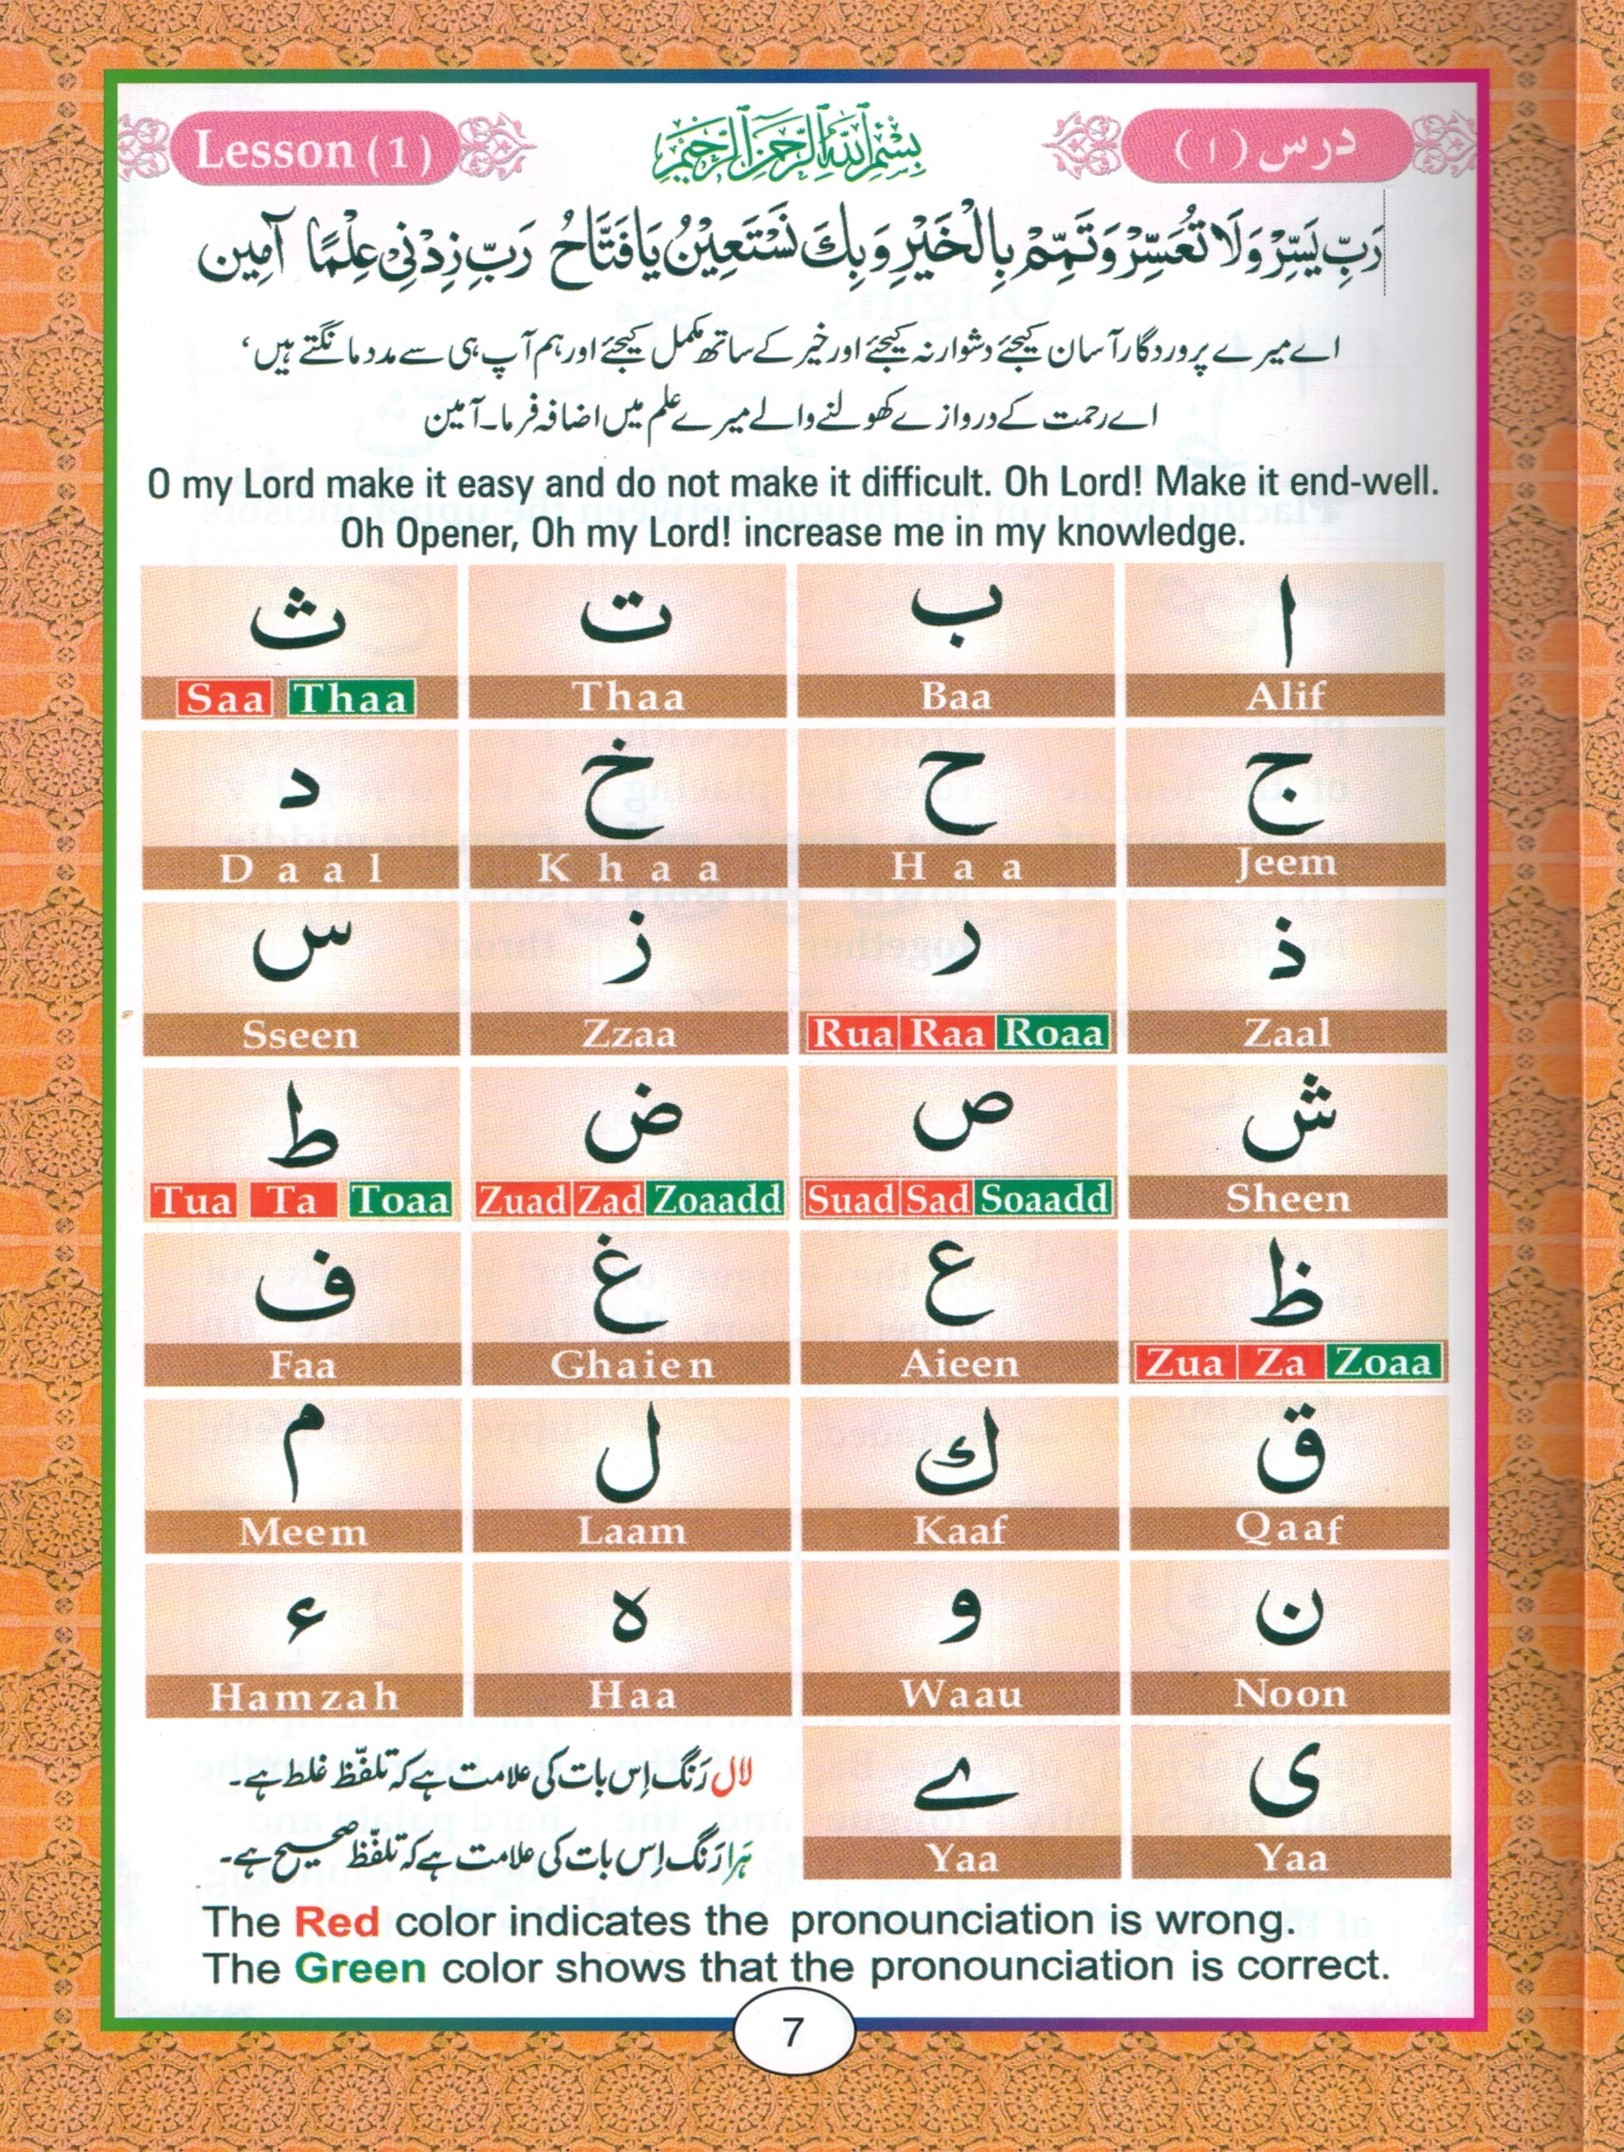 Lesson (1)
بِسْمِ اللّٰهِ الرَّحْمٰنِ الرَّحِيْمِ
درس (۱)
رَبِّ يَسِّرْ وَلَا تُعَسِّرْ وَتَمِّمْ بِالْخَيْرِ وَبِكَ نَسْتَعِيْنُ يَافَتَّاحُ رَبِّ زِدْنِيْ عِلْمًا آمِين
اے میرے پروردگار آسان کیجئے دشوار نہ کیجئے اور خیر کے ساتھ مکمل کیجئے اور ہم آپ ہی سے مدد مانگتے ہیں،
اے رحمت کے دروازے کھولنے والے میرے علم میں اضافہ فرما۔ آمین
O my Lord make it easy and do not make it difficult. Oh Lord! Make it end-well.
Oh Opener, Oh my Lord! increase me in my knowledge.
ا ب ت ث
Alif Baa Thaa Saa Thaa
ج ح خ د
Jeem Haa Khaa Daal
ذ ر ز س
Zaal Rua Raa Roaa Zzaa Sseen
ش ص ض ط
Sheen Suad Sad Soaadd Zuad Zad Zoaadd Tua Ta Toaa
ظ ع غ ف
Zua Za Zoaa Aieen Ghaien Faa
ق ك ل م
Qaaf Kaaf Laam Meem
ن و ہ ء
Noon Waau Haa Hamzah
ی ے
Yaa Yaa
لال رَنگ اِس بات کی علامت ہے کہ تلفّظ غلط ہے۔
ہَرا رَنگ اِس بات کی علامت ہے کہ تلفّظ صحیح ہے۔
The Red color indicates the pronounciation is wrong.
The Green color shows that the pronounciation is correct.
7